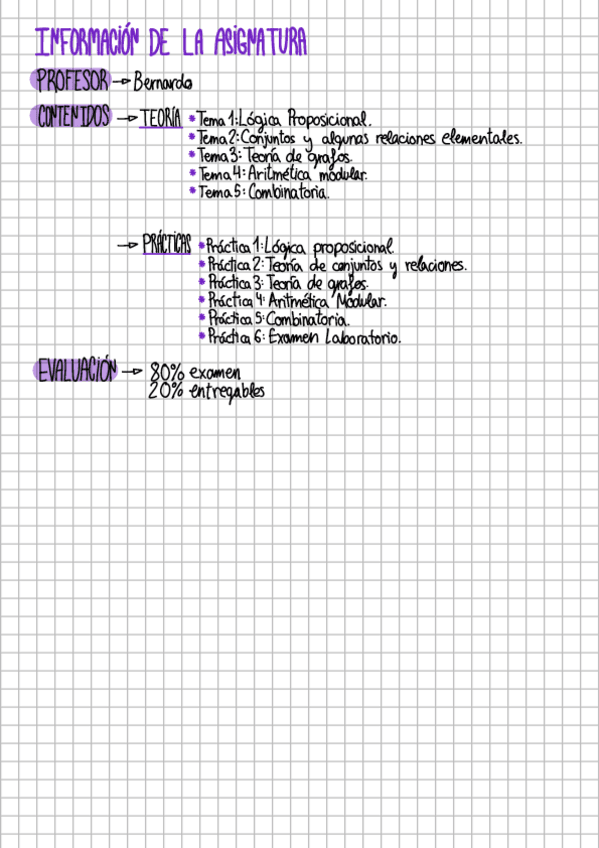 INFORMACIÓN DE LA ASIGNATURA
PROFESOR → Bernardo
CONTENIDOS → TEORÍA * Tema 1: Lógica Proposicional.
* Tema 2: Conjuntos y algunas relaciones elementales.
* Tema 3: Teoría de grafos.
* Tema 4: Aritmética modular.
* Tema 5: Combinatoria.
→ PRÁCTICAS * Práctica 1: Lógica proposicional
* Práctica 2: Teoría de conjuntos y relaciones.
* Práctica 3: Teoría de grafos.
* Práctica 4: Aritmética Modular.
* Práctica 5: Combinatoria.
* Práctica 6: Examen Laboratorio.
EVALUACIÓN → 80% examen
20% entregables